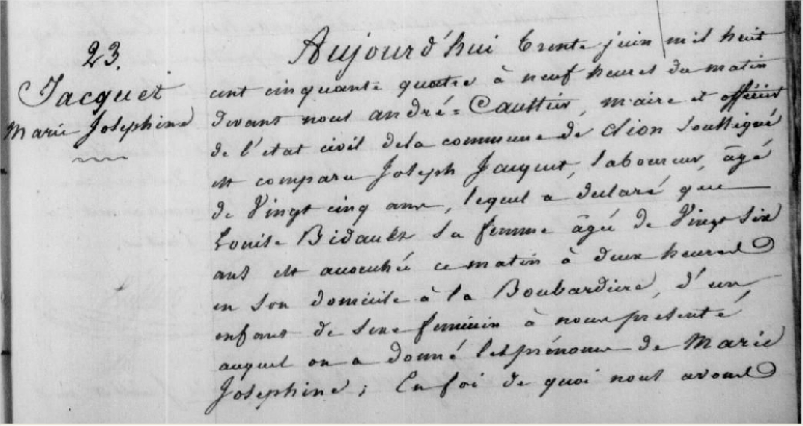 23.
Jacquet
Marie Josephine
Aujourd'hui trente juin mil huit
cent cinquante quatre à neuf heures du matin
devant nous andré = Cauttier, maire et officier
de l'état civil de la commune de clion soussigné
est comparu Joseph Jacquet, laboureur, âgé
de Vingt cinq ans, lequel a declaré que
Louise Bidault sa femme âgée de Vingt six
ans est accouchée ce matin à deux heures
en son domicile à la Boubardiere, d'un
enfant de sexe feminin à nous presenté,
auquel on a donné les prénoms de Marie
Josephine; En foi de quoi nous avons